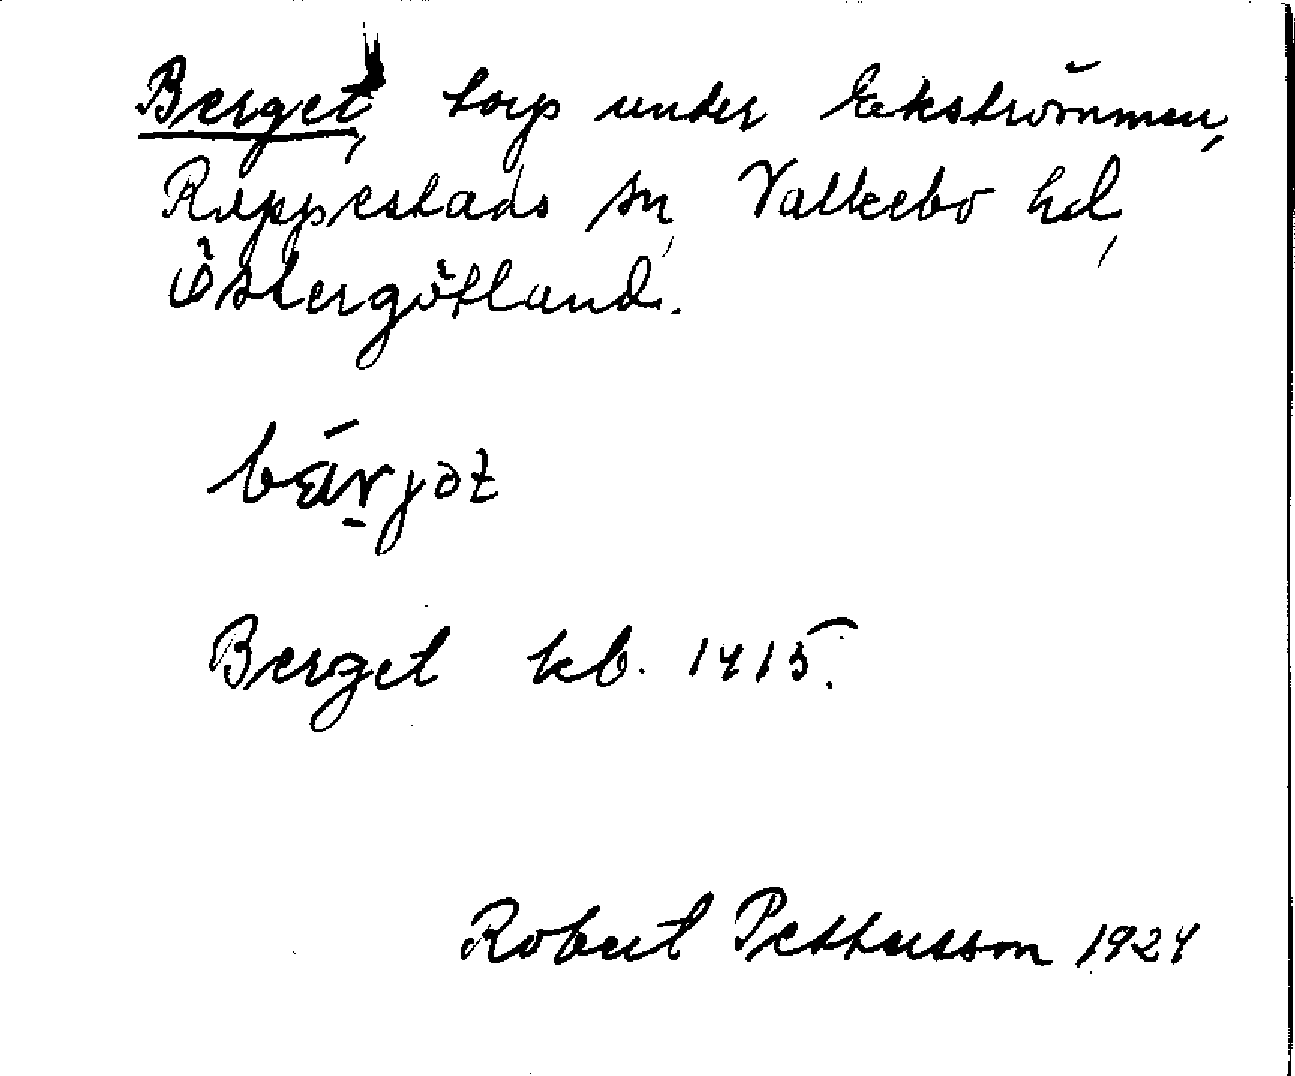 Berget, torp under Ekströmmen,
Rappestads sn, Valkebo hd,
Östergötland.
bärjət
Berget kb. 1415.
Robert Pettersson 1924